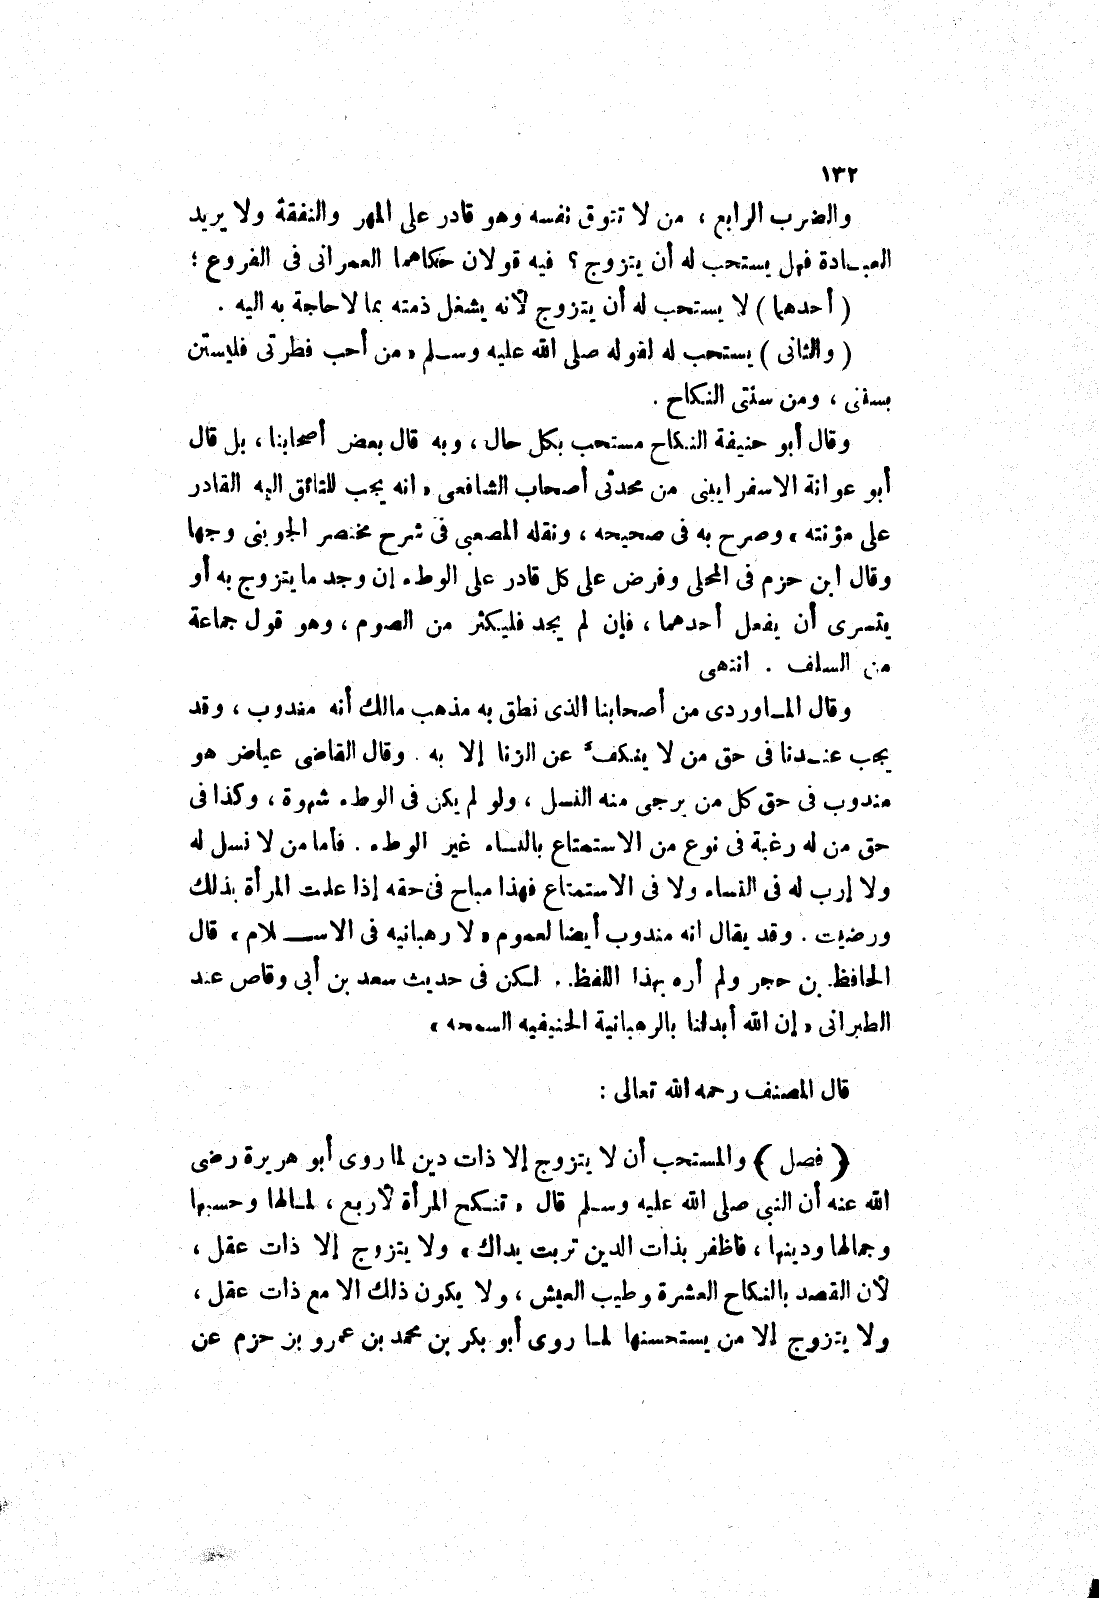 ١٣٢
والضرب الرابع ، من لا تتوق نفسه وهو قادر على المهر والنفقة ولا يريد
العبادة فهل يستحب له أن يتزوج ؟ فيه قولان حكاهما العمرانى فى الفروع ؛
( أحدهما ) لا يستحب له أن يتزوج لأنه يشغل ذمته بما لا حاجة به اليه .
( والثانى ) يستحب له لقوله صلى الله عليه وسلم « من أحب فطرتى فليستن
بسنتى ، ومن سنتى النكاح .
وقال أبو حنيفة النكاح مستحب بكل حال ، وبه قال بعض أصحابنا ، بل قال
أبو عوانة الاسفرايينى من محدثى أصحاب الشافعى « انه يجب للتائق اليه القادر
على مؤنته » وصرح به فى صحيحه ، ونقله المصعبى فى شرح مختصر الجوينى وجها
وقال ابن حزم فى المحلى وفرض على كل قادر على الوطء إن وجد ما يتزوج به أو
يتسرى أن يفعل أحدهما ، فإن لم يجد فليكثر من الصوم ، وهو قول جماعة
من السلف . انتهى
وقال الماوردى من أصحابنا الذى نطق به مذهب مالك أنه مندوب ، وقد
يجب عندنا فى حق من لا ينكف عن الزنا إلا به . وقال القاضى عياض هو
مندوب فى حق كل من يرجى منه النسل ، ولو لم يكن فى الوطء شهوة ، وكذا فى
حق من له رغبة فى نوع من الاستمتاع بالنساء غير الوطء . فأما من لا نسل له
ولا إرب له فى النساء ولا فى الاستمتاع فهذا مباح فى حقه إذا علمت المرأة بذلك
ورضيت . وقد يقال انه مندوب أيضا لعموم « لا رهبانيه فى الاســـلام » قال
الحافظ بن حجر ولم أره بهذا اللفظ . لكن فى حديث سعد بن أبى وقاص عند
الطبرانى « إن الله أبدلنا بالرهبانية الحنيفيه السمحه »
قال المصنف رحمه الله تعالى :
( فصل ) والمستحب أن لا يتزوج إلا ذات دين لما روى أبو هريرة رضى
الله عنه أن النبى صلى الله عليه وسلم قال « تنكح المرأة لأربع ، لمالها وحسبها
وجمالها ودينها ، فاظفر بذات الدين تربت يداك » ولا يتزوج إلا ذات عقل ،
لأن القصد بالنكاح العشرة وطيب العيش ، ولا يكون ذلك الا مع ذات عقل ،
ولا يتزوج إلا من يستحسنها لما روى أبو بكر بن محمد بن عمرو بن حزم عن